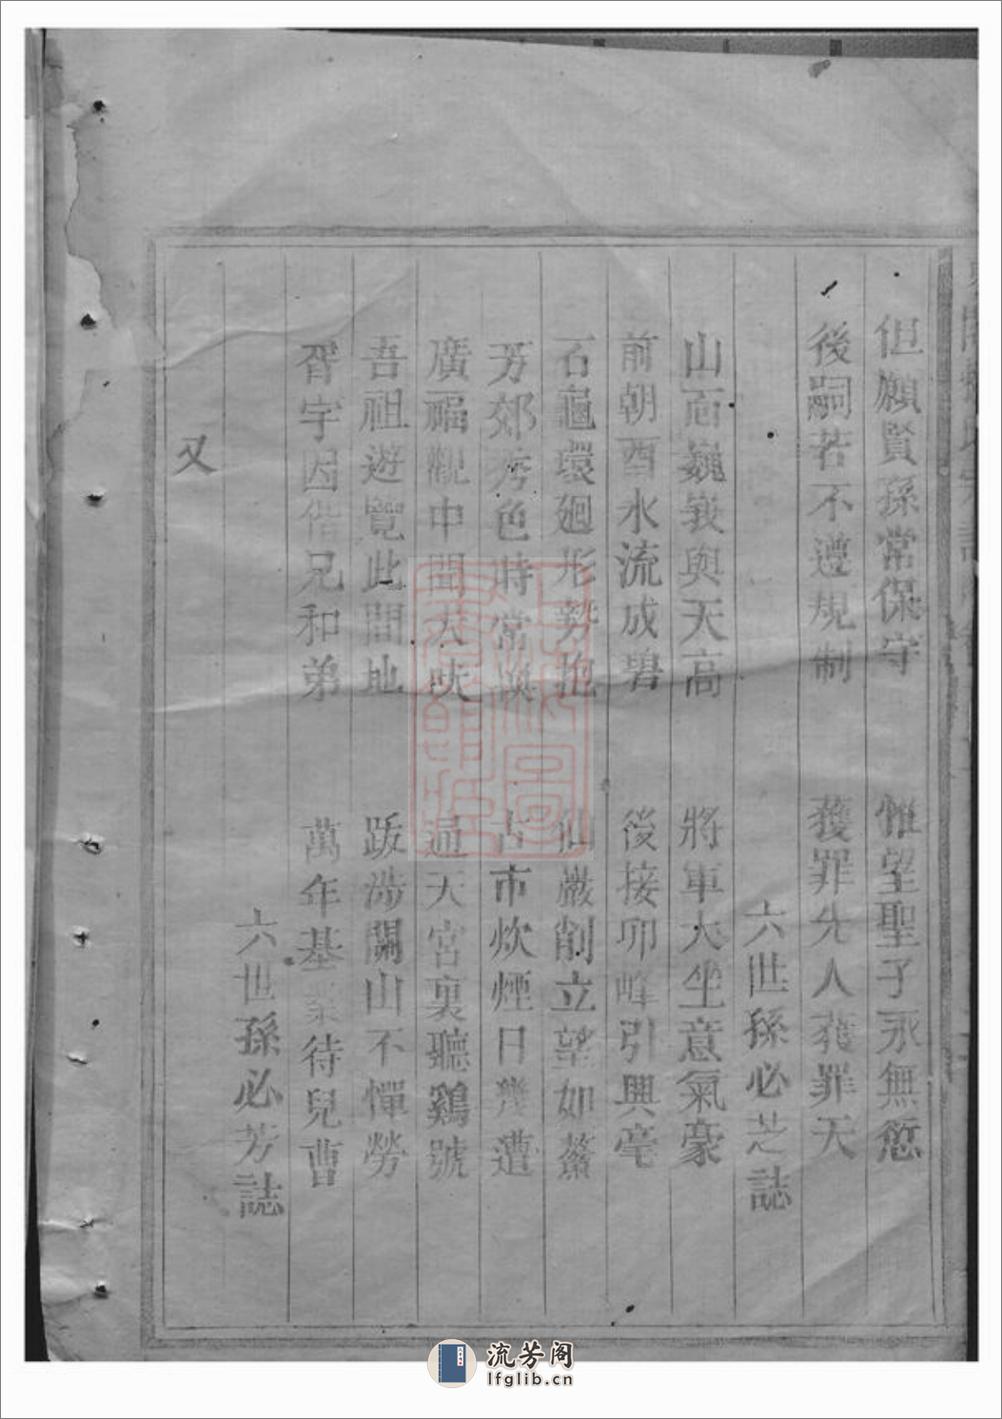 但願賢孫常保守　惟望聖子永無愆
後嗣若不遵規制　獲罪先人獲罪天
六世孫必芝誌
山面巍峩與天高　將軍大坐意氣豪
前朝酉水流成碧　後接卯峰引興毫
石龜環廻形勢抱　仙巖削立望如鰲
芳郊秀色時常 　古市炊煙日幾遭
廣福觀中聞犬吠　過天宮裏聽鷄號
吾祖遊覽此間地　跋涉關山不憚勞
胥宇因偕兄和弟　萬年基業待兒曹
六世孫必芳誌
又
流芳阁
lfglib.cn